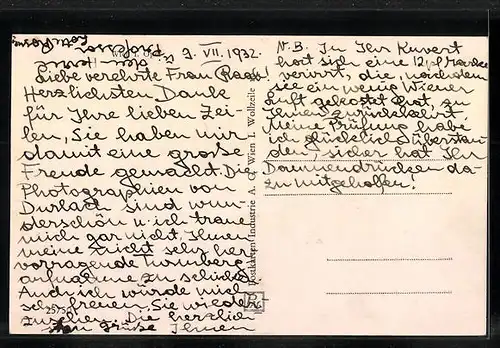 9. VII. 1932.
Liebe verehrte Frau
Herzlichsten Dank
für Ihre lieben Zei-
len, Sie haben mir
damit eine große
Freude gemacht. Die
Photographien von
Durlach sind wun-
derschön u. ich traue
mich gar nicht, Ihnen
meine nicht sehr her
vorragende Turmberg
aufnahme zu schicken
Auch ich würde mich
sehr freuen, Sie wieder
zusehen. Die herzlich
sten Grüße Ihnen
u. dem Herrn
Professor
N. B. In Ihr Kuvert
hat sich eine 12 pf Marke
verirrt, die, nachdem
sie ein wenig Wiener
Luft gekostet hat, zu
Ihnen zurückkehrt.
Meine Prüfung habe
ich glücklich überstan
den, sicher hat Ihr
Daumendrücken da-
zu mitgeholfen!
Postkarten-Industrie A. G. Wien I. Wollzeile